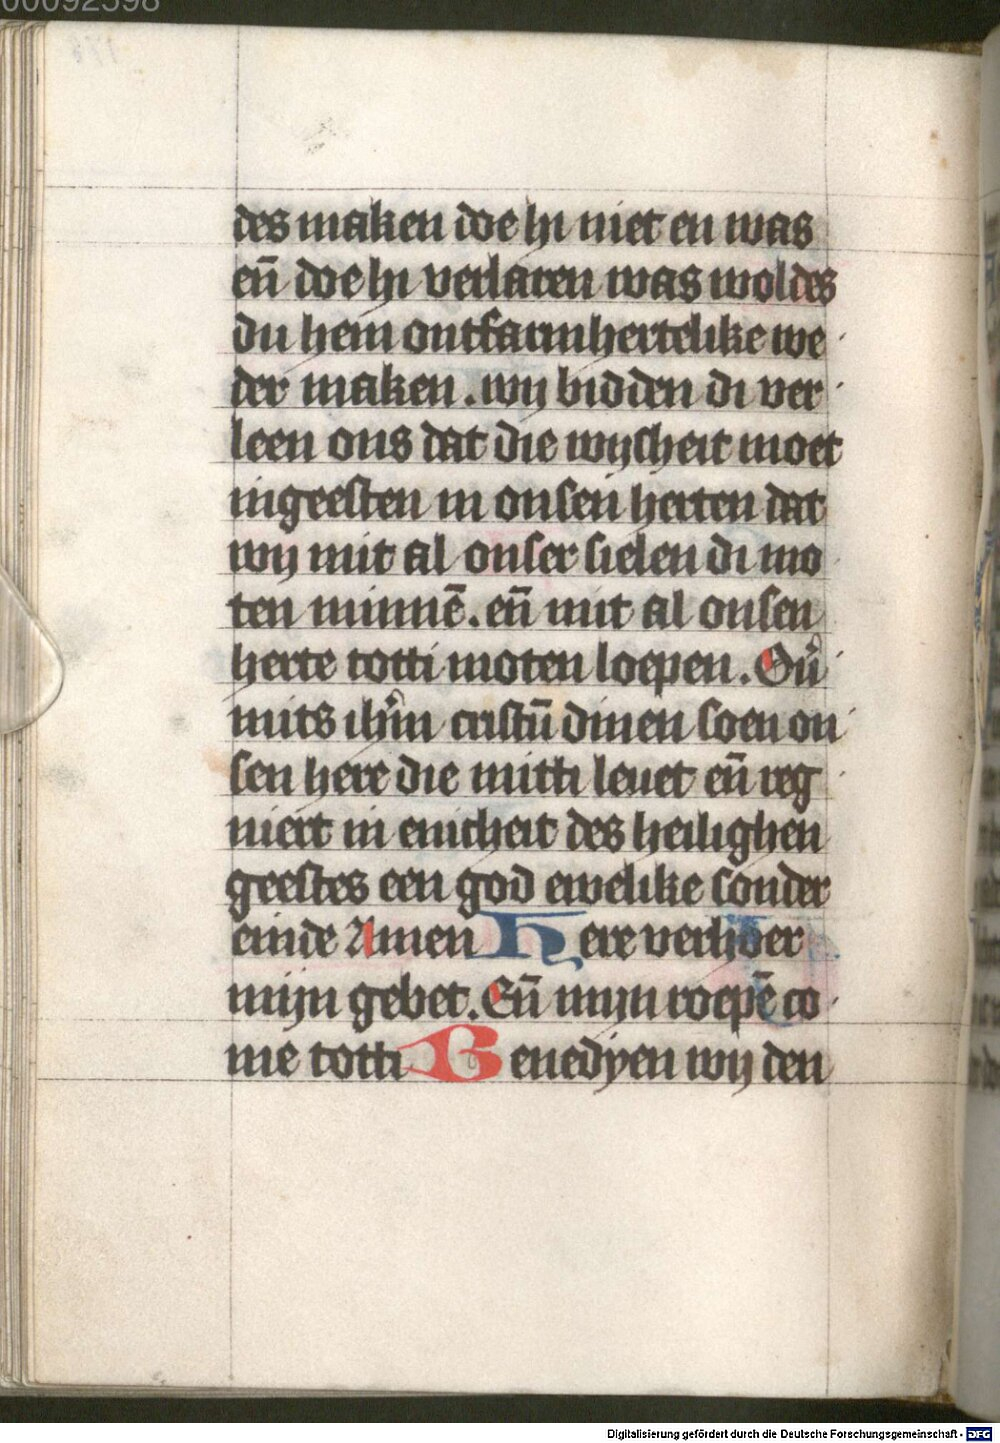 00092598
des maken doe hi niet en was
eñ doe hi verlaren was woldes
du hem ontfarmhertelike we
der maken. wij bidden di ver
leen ons dat die wijsheit moet
ingeesten in onsen herten dat
wij mit al onser sielen di mo
ten minnē. eñ mit al onsen
herte totti moten loepen. Ou͛
mits ihm̄ cristū dinen soen on
sen here die mitti leuet eñ reg
niert in enicheit des heilighen
geestes een god ewelike sonder
einde Amen Here verhoer
mijn gebet. Eñ mijn roepē co
me totti Benedyen wij den
Digitalisierung gefördert durch die Deutsche Forschungsgemeinschaft - DFG